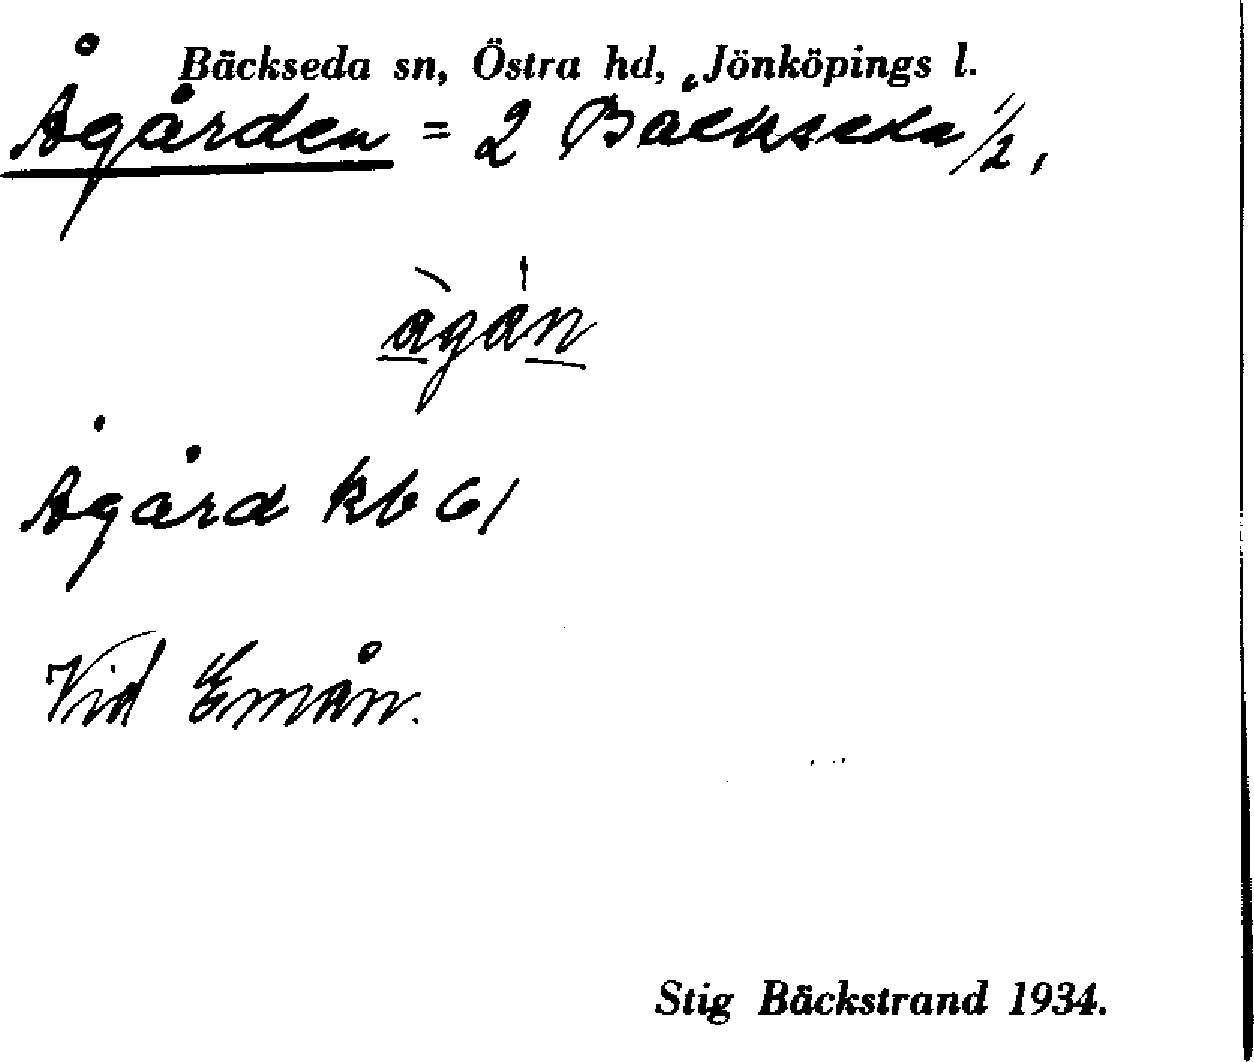 Bäckseda sn, Östra hd, Jönköpings l.
Ågården = 2 Bäckseda 1/2,
àgán
Ågård kb 61
Vid Emån.
Stig Bäckstrand 1934.